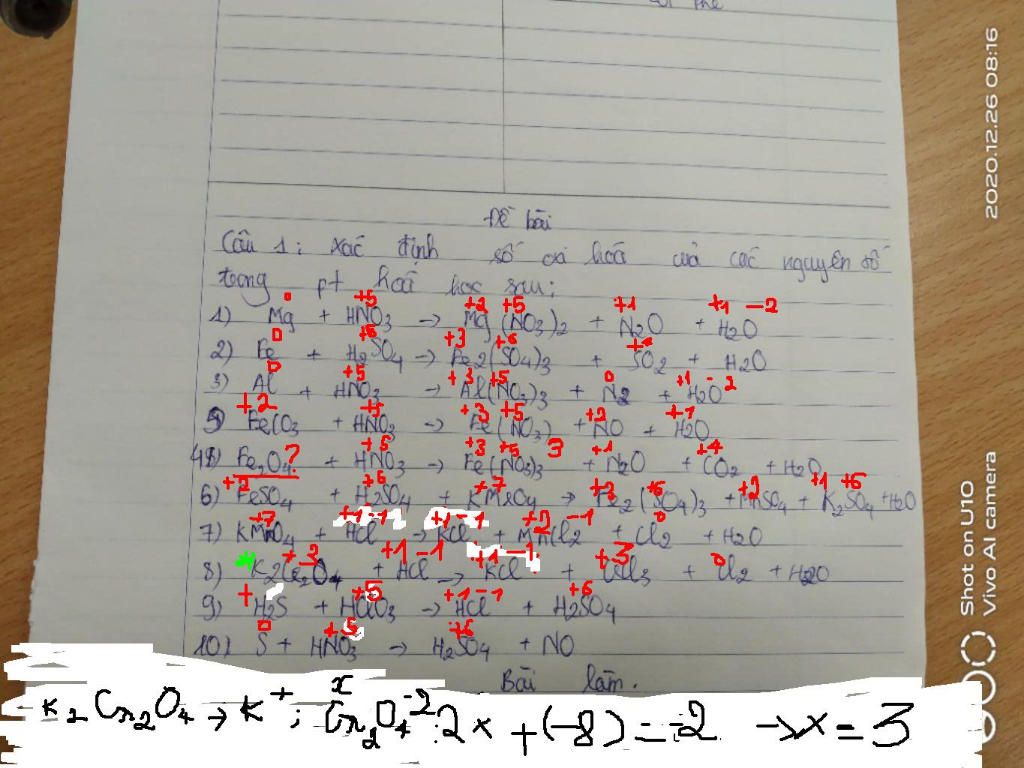 Đề bài
Câu 1: Xác định số oxi hoá của các nguyên số
trong pt hoá học sau:
0 +5 +2 +5 +1 +1 -2
1) Mg + HNO3 → Mg(NO3)2 + N2O + H2O
0 +6 +3 +6
2) Fe + H2SO4 → Fe2(SO4)3 + SO2 + H2O
0 +5 +3 +5 0 +1 -2
3) Al + HNO3 → Al(NO3)3 + N2 + H2O
+2 +5 +3 +5 +2 +1
FeCO3 + HNO3 → Fe(NO3) + NO + H2O
+5 +3 +5 3 +1 +4
Fe2O4? + HNO3 → Fe(NO3)3 + N2O + CO2 + H2O
+2 +6 +7 +3 +6 +2 +1 +6
6) FeSO4 + H2SO4 + KMnO4 → Fe2(SO4)3 + MnSO4 + K2SO4 + H2O
+7 +1 -1 +1 -1 +2 -1 0
7) KMnO4 + HCl → KCl + MnCl2 + Cl2 + H2O
+3 +1 -1 +1 -1 +3 0
8) K2Cr2O4 + HCl → KCl + CrCl3 + Cl2 + H2O
+ +5 +1 -1 +6
9) H2S + HClO3 → HCl + H2SO4
0 +5 +6
10) S + HNO3 → H2SO4 + NO
Bài làm.
K2Cr2O4 → K+; x Cr2O4-2: 2x + (-8) = -2 → x = 3
2020.12.26 08:16
Shot on U10
Vivo AI camera